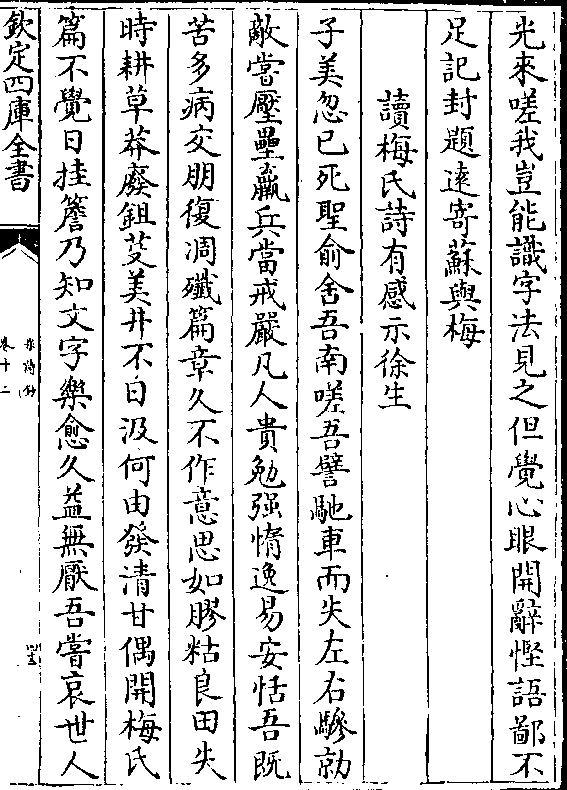 光來嗟我豈能識字法見之但覺心眼開辭慳語鄙不
足記封題遠寄蘇與梅
讀梅氏詩有感示徐生
子美忽已死聖俞舍吾南嗟吾譬馳車而失左右驂勍
敵嘗壓壘羸兵當戒嚴凡人貴勉强惰逸易安恬吾既
苦多病交朋復凋殲篇章久不作意思如膠粘良田失
時耕草莽廢鉏芟美井不日汲何由發清甘偶開梅氏
篇不覺日挂簷乃知文字樂愈久益無厭吾嘗哀世人
欽定四庫全書
宋詩鈔
卷十二